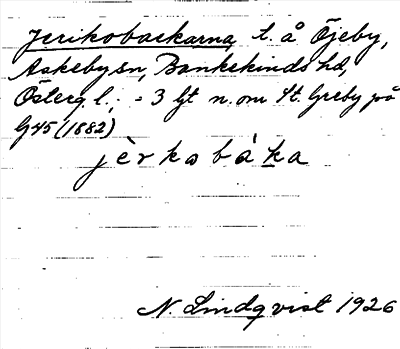 Jerikobackarna, t. å Öjeby,
Askeby sn, Bankekinds hd,
Österg. l.; = 3 lgt n. om St. Greby på
G45 (1882)
jèrkobáka
N. Lindqvist 1926